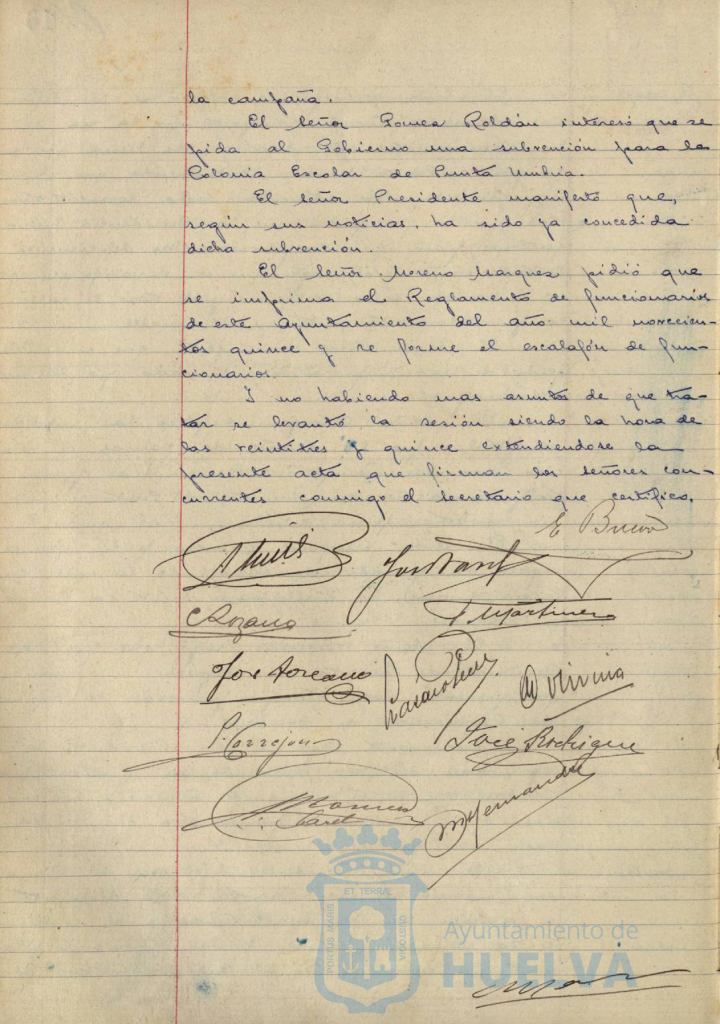 la campaña.
El señor Ponce Roldán interesó que se
pida al Gobierno una subvención para la
Colonia Escolar de Punta Umbria.
El señor Presidente manifestó que,
según sus noticias, ha sido ya concedida
dicha subvención.
El señor Moreno Marquez pidió que
se imprima el Reglamento de funcionarios
de este Ayuntamiento del año mil novecien-
tos quince y se forme el escalafón de fun-
cionarios.
Y no habiendo mas asuntos de que tra-
tar se levantó la sesión siendo la hora de
las veintitres y quince extendiendose la
presente acta que firman los señores con-
currentes conmigo el secretario que certifico.
E
C Lozano
Martinez
José
P. Correjon
José Rodrigue
M Hernandez
ET TERRAE
PORTUS MARIS
CUSTODIA
Ayuntamiento de
HUELVA